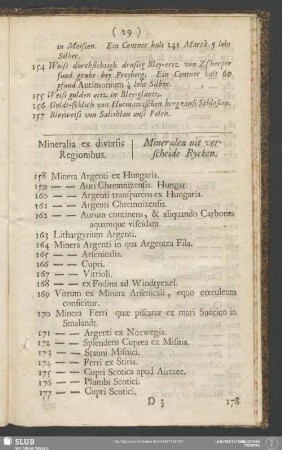 ( 29 )
in Meissen. Ein Centner halt 145 Marck 5 lohs
Silber.
154 Weiss durchsichtigh drussig Bley-ertz von Zscherper
fund grube bey Freyberg. Ein Centner halt 69
pfund Antimonium ¼ lohs Silber.
155 Weiss gulden ertz in Bley-glantz.
156 Goldt-schlich von Hucmantischen bergeauss Schlesien.
157 Bleyweiss von Salishlau auss Polen.
Mineralia ex diversis
Regionibus.
Mineralen uit ver-
scheide Rycken.
158 Minera Argenti ex Hungaria.
159 — — Auri Chremnizensis. Hungar:
160 — — Argenti transparens ex Hungaria.
161 — — Argenti Chremnizensis.
162 — — Aurum continens, & aliquando Carbones
aquamque viscidam.
163 Lithargyrium Argenti.
164 Minera Argenti in qua Argentea Fila.
165 — — Arsenicalis.
166 — — Cupri.
167 — — Vitrioli.
168 — — ex Fodina ad Windryexel.
169 Vitrum ex Minera Arsenicali, equo cœruleum
conficitur.
170 Minera Ferri quæ piscatur ex mari Suecico in
Smalandt.
171 — — Argenti ex Norwegia.
172 — — Splendens Cuprea ex Misnia.
173 — — Stanni Misnici.
174 — — Ferri ex Stiria.
175 — — Cupri Scotica apud Airtzee.
176 — — Plumbi Scotici.
177 — — Cupri Scotici.
D 3
178
SLUB
Wir führen Wissen.